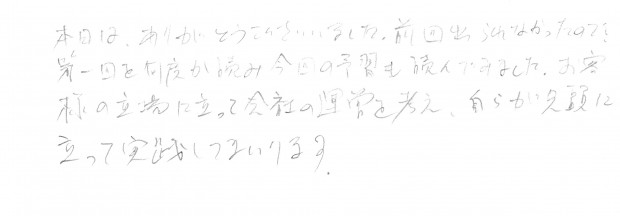 本日は、ありがとうございました。前回出られなかったので、
第一回を何度か読み今回の予習も読んできました。お客
様の立場に立って会社の運営を考え、自らが先頭に
立って実践してまいります。